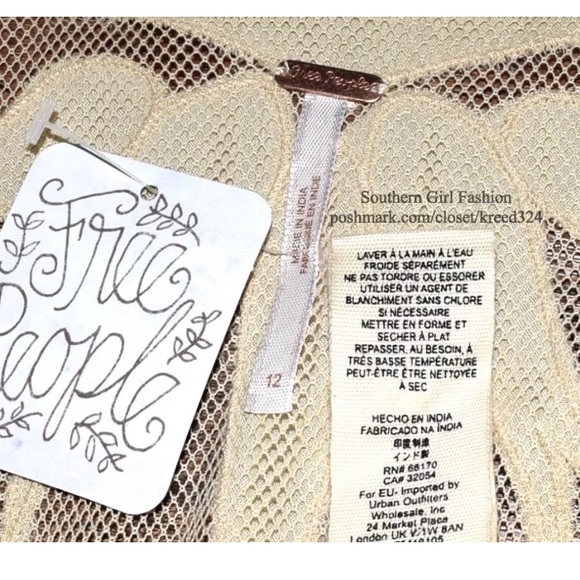 Free People
Free
People
MADE IN INDIA
FABRIQUE EN INDE
12
Southern Girl Fashion
poshmark.com/closet/kreed324
LAVER À LA MAIN À L'EAU
FROIDE SÉPARÉMENT
NE PAS TORDRE OU ESSORER
UTILISER UN AGENT DE
BLANCHIMENT SANS CHLORE
SI NÉCESSAIRE
METTRE EN FORME ET
SECHER À PLAT
REPASSER, AU BESOIN, À
TRÈS BASSE TEMPÉRATURE
PEUT-ÊTRE ÊTRE NETTOYÉE
À SEC
HECHO EN INDIA
FABRICADO NA ÍNDIA
印度制造
インド製
RN# 66170
CA# 32054
For EU- Imported by
Urban Outfitters
Wholesale, Inc
24 Market Place
London UK W1W 8AN